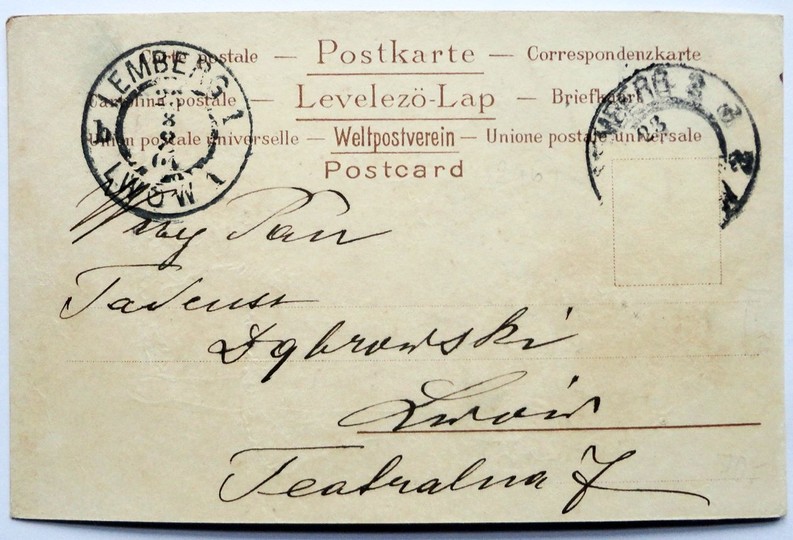 Carte postale — Postkarte — Correspondenzkarte
Cartolina postale — Levelezö-Lap — Briefkaart
Union postale universelle — Weltpostverein — Unione postale universale
Postcard
LEMBERG 1
b
LWÓW 1
LEMBERG 2
Wny Pan
Tadeusz
Dąbrowski
Lwów
Teatralna 7